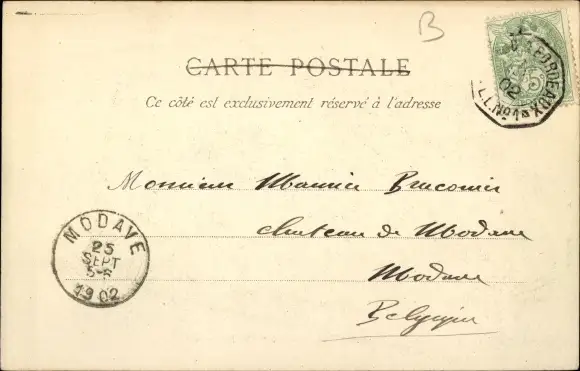 B
CARTE POSTALE
Ce côté est exclusivement réservé à l'adresse
BORDEAUX
L.L.No1
02
5
Monsieur Maurice Braconier
Chateau de Modave
Modave
Belgique
MODAVE
25
SEPT
1902